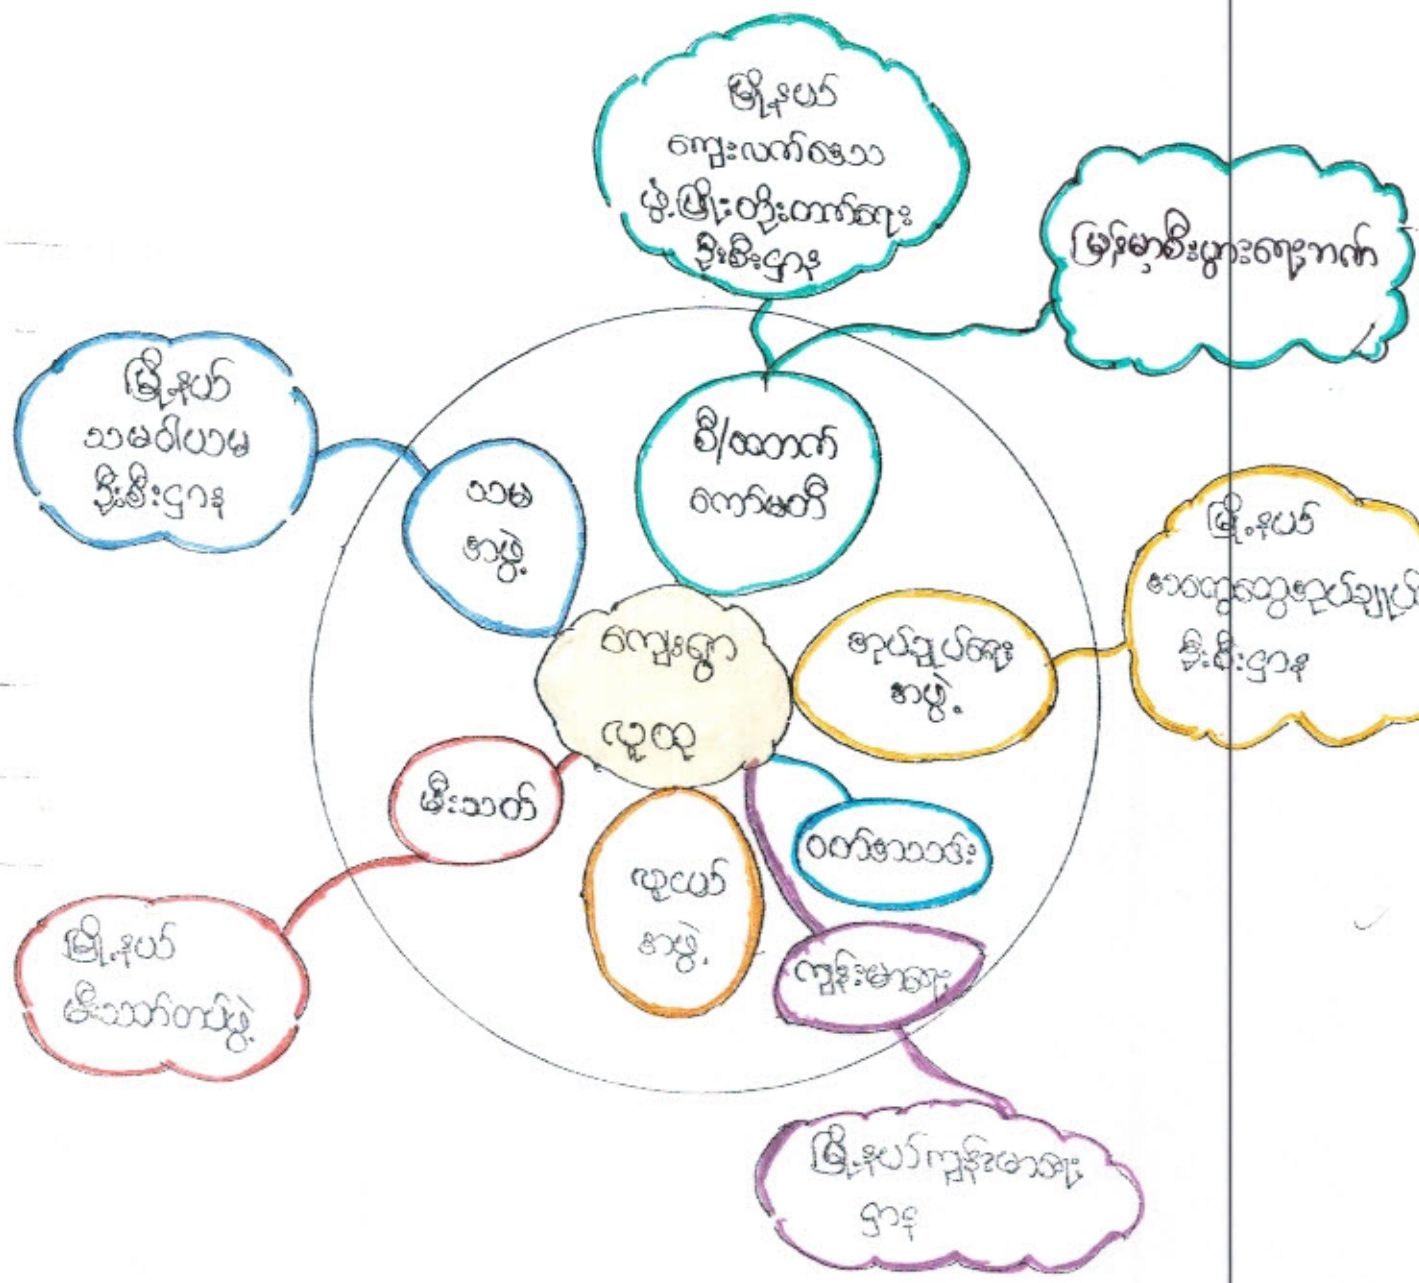 မြို့နယ်
ကျေးလက်ဒေသ
ဖွံ့ဖြိုးတိုးတက်ရေး
ဦးစီးဌာန
မြန်မာ့စီးပွားရေးဘဏ်
မြို့နယ်
သမဝါယမ
ဦးစီးဌာန
သမ
အဖွဲ့
စီ/ထောက်
ကော်မတီ
မြို့နယ်
အထွေထွေအုပ်ချုပ်
ဦးစီးဌာန
ကျေးရွာ
လူထု
အုပ်ချုပ်ရေး
အဖွဲ့
မီးသတ်
ဝတ်အသင်း
လူငယ်
အဖွဲ့
ကျန်းမာရေး
မြို့နယ်
မီးသတ်တပ်ဖွဲ့
မြို့နယ်ကျန်းမာရေး
ဌာန